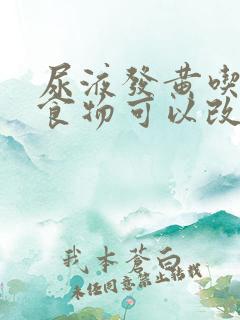 尿液發黄喫
食物可以改
我本蒼白
未经同意禁止转载